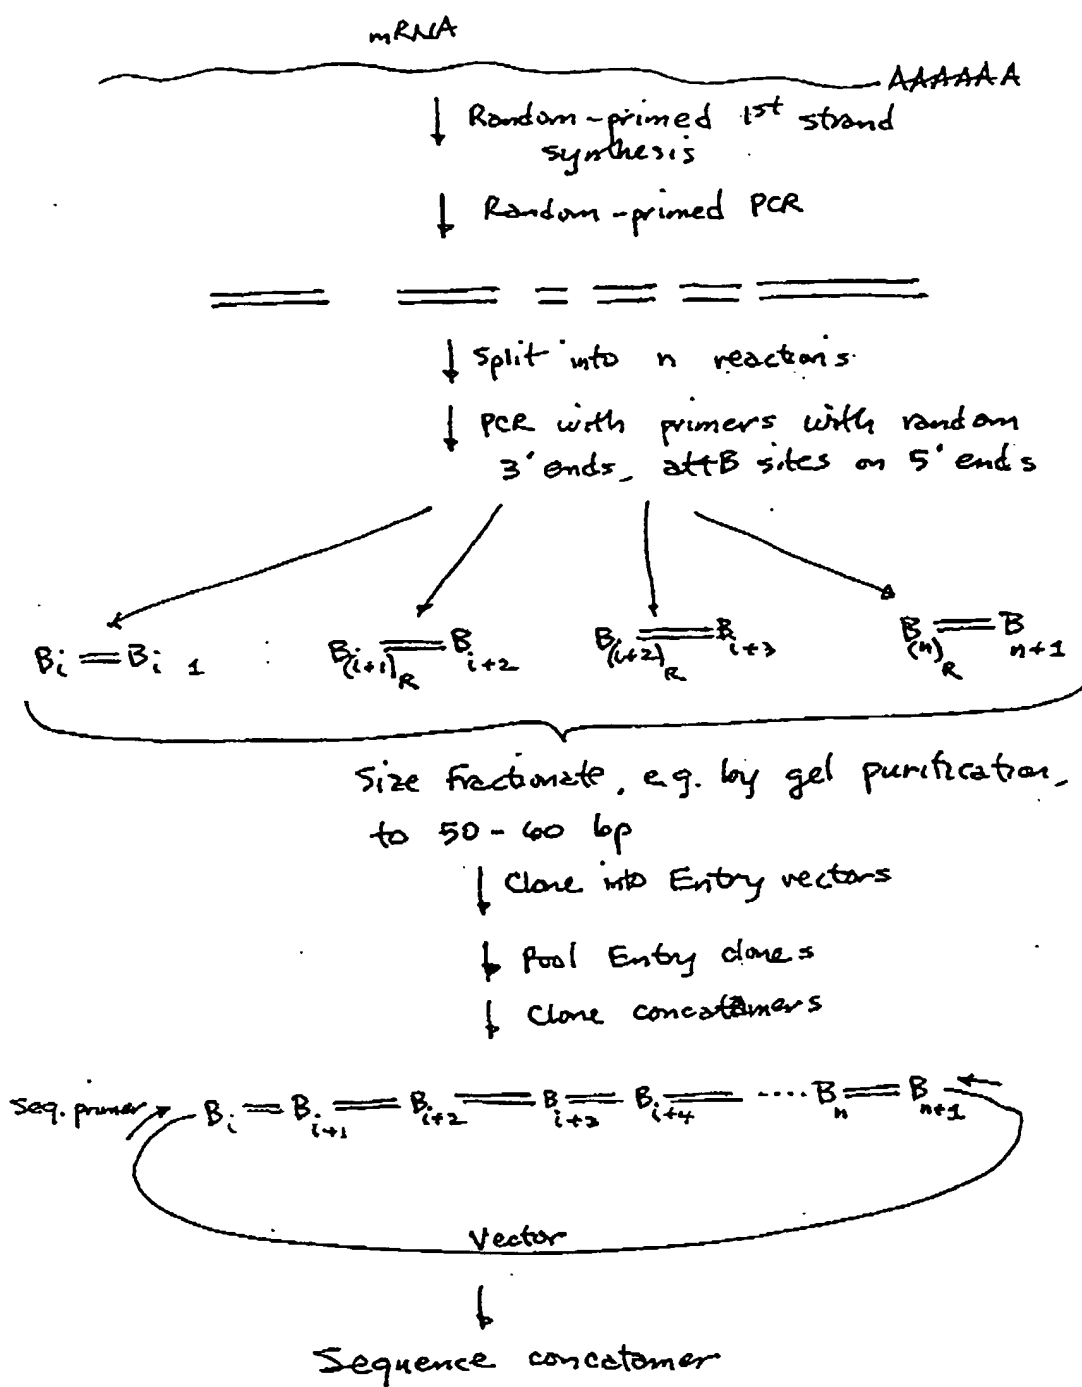 mRNA
AAAAAA
Random-primed 1st strand
synthesis
Random-primed PCR
Split into n reactions
PCR with primers with random
3' ends, attB sites on 5' ends
Bi Bi 1 B(i+1)R Bi+2 B(i+2)R Bi+3 B(n)R Bn+1
Size fractionate, e.g. by gel purification,
to 50-60 bp
Clone into Entry vectors
Pool Entry clones
Clone concatamers
Seq. primer Bi Bi+1 Bi+2 Bi+3 Bi+4 ···· Bn Bn+1
Vector
Sequence concatomer